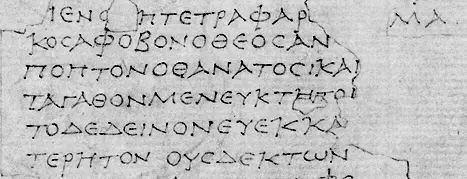 ΙΕΝΟ ΗΤΕΤΡΑΦΑΡ ΜΑ
ΚΟϹΑΦΟΒΟΝΟΘΕΟϹΑΝ
ΠΟΠΤΟΝΟΘΑΝΑΤΟϹΚΑΙ
ΤΑΓΑΘΟΝΜΕΝΕΥΚΤΗΤΟΙ
ΤΟΔΕΔΕΙΝΟΝΕΥΕΚΚΑ
ΤΕΡΗΤΟΝ ΟΥϹΔΕΚΤΩΝ